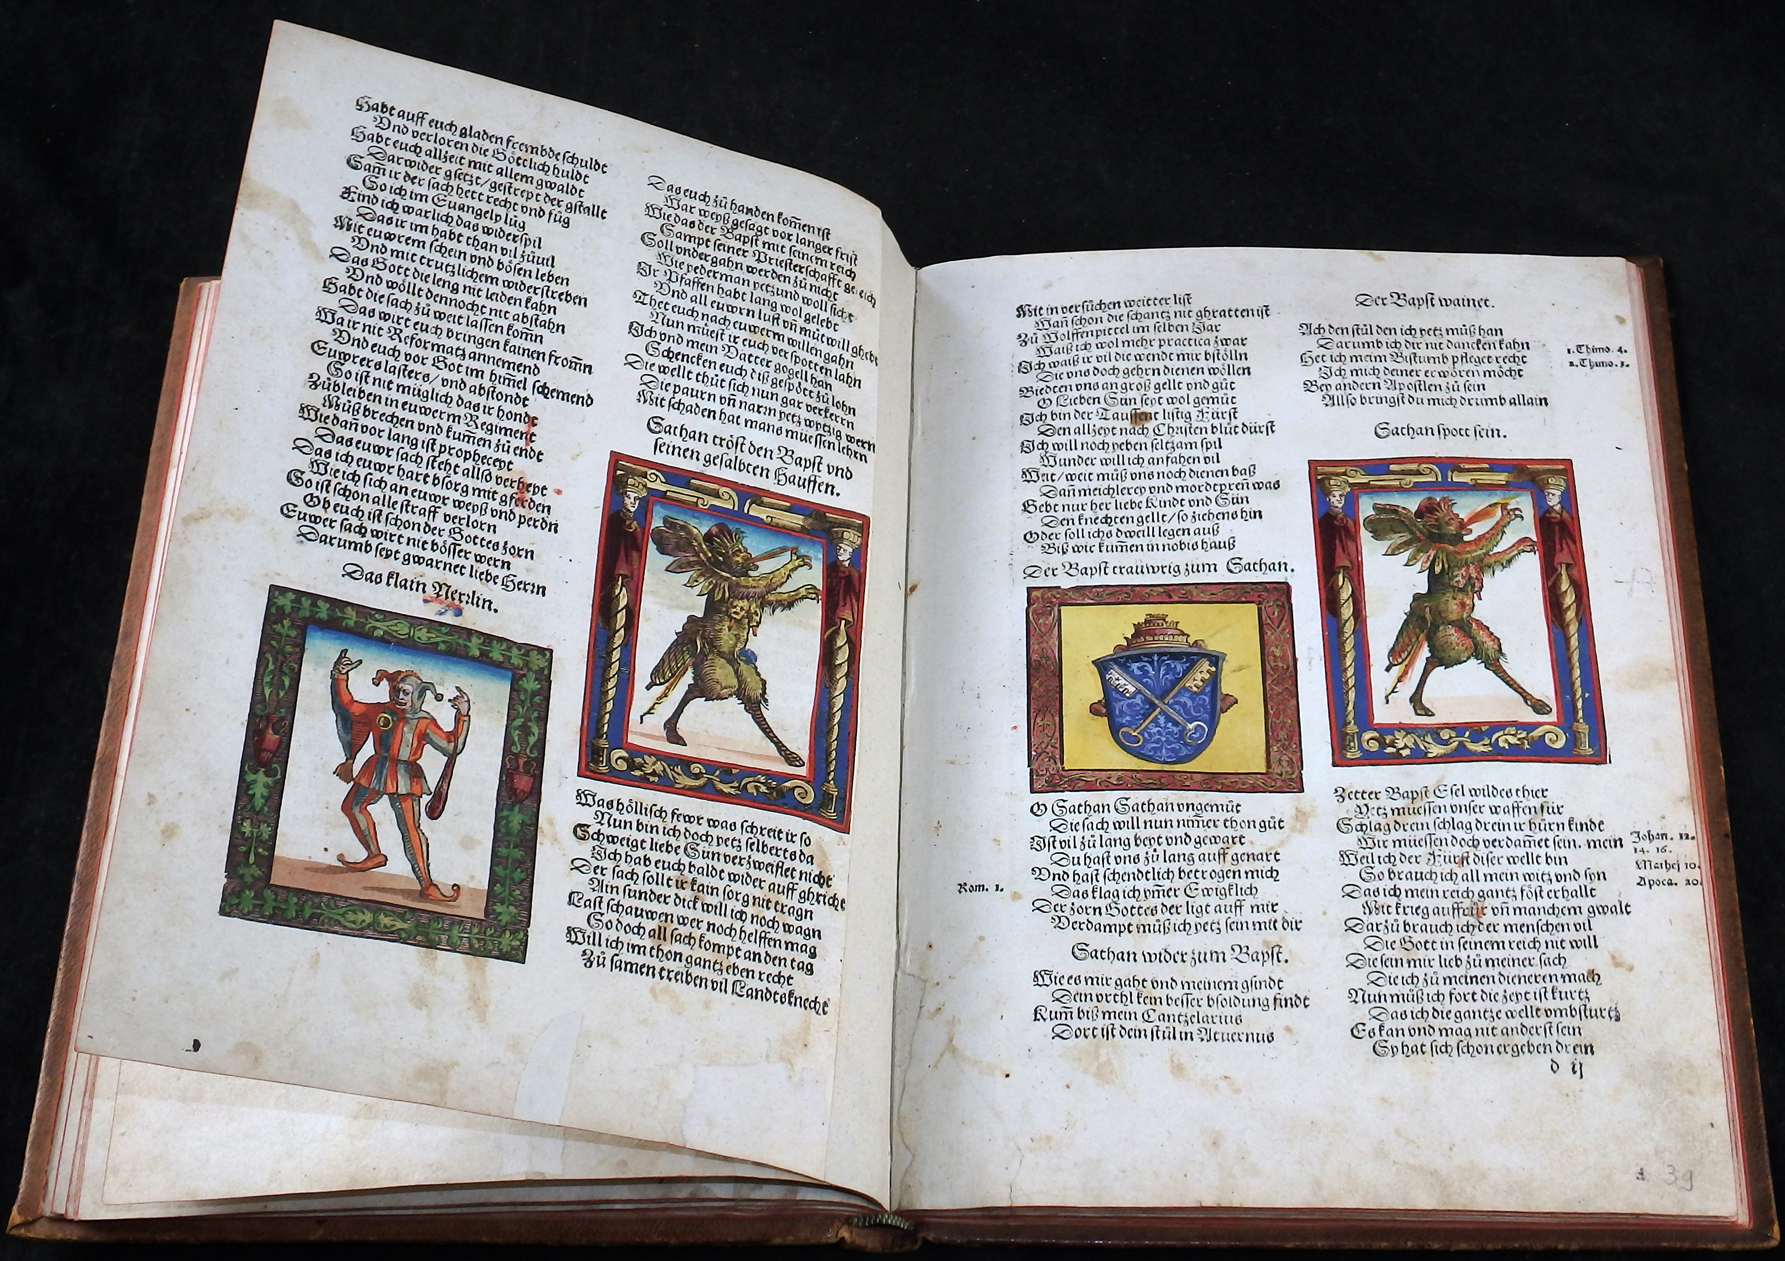 Habt auff euch gladen frembde schuldt
Vnd verloren die Göttlich huldt
Habt euch allzeit mit allem gwaldt
Darwider gsetzt / gestrept der gstallt
Sam̃ ir der sach hett recht vnd fůg
So ich im Euangely lůg
Find ich warlich das widerspil
Das ir im habt than vil zůuil
Mit euwrem schein vnd bösen leben
Vnd mit trutzlichem widerstreben
Das Gott die leng nit leiden kahn
Vnd wöllt dennocht nit abstahn
Habt die sach zů weit lassen kom̃n
Das wirt euch bringen kainen from̃n
Wa ir nit Reformatz annemend
Vnd euch vor Got im him̃el schemend
Euwrers lasters / vnd abstondt
So ist nit müglich das ir hondt
Zůbleiben in euwerm Regiment
Můß brechen vnd kum̃en zů endt
Wie dañ vor lang ist prophecept
Das euwr sach steht allso verheyt
Das ich euwr hart bsorg mit gferden
Wie ich sich an euwr weyß vnd perdn
So ist schon alle straff verlorn
Ob euch ist schon der Gottes zorn
Euwer sach wirt nit bösser wern
Darumb seyt gwarnet liebe Herrn
Das klain Nerrlin.
Das euch zů handen kom̃en ist
War weyß gesagt vor langer frist
Wie das der Bapst mit seinem reich
Sampt seiner Priesterschafft geleich
Soll vndergahn werden zů nicht
Wie yederman yetzund woll sicht
Ir Pfaffen habt lang wol gelebt
Vnd all euwrn lust vñ můtwill ghebt
Thet euch nach euwerm willen gahn
Nun müest ir euch verspotten lahn
Ich vnd mein Vatter gogell han
Schencken euch diß gespött zů lohn
Die wellt thůt sich nun gar verkern
Die paurn vñ narrn yetz wytzig wern
Mit schaden hat mans müessen lehrn
Sathan tröst den Bapst vnd
seinen gesalbten Hauffen.
Was höllisch fewr was schreit ir so
Nun bin ich doch yetz selberts da
Schweigt liebe Sün verzweiflet nicht
Ich hab euch baldt wider auff ghricht
Der sach sollt ir kain sorg nit tragn
Ain sunder dick will ich noch wagn
Last schauwen wer noch helffen mag
So doch all sach kompt an den tag
Will ich im thon gantz eben recht
Zů samen treiben vil Landtsknecht
Mit in versůchen weitter list
Wañ schon die schantz nit ghratten ist
Zů Wolffenpittel im selben Jar
Waiß ich wol mehr practica zwar
Ich waiß ir vil die wendt mir bstölln
Die vns doch gehrn dienen wöllen
Biedten vns an groß gellt vnd gůt
O Lieben Sün seyt wol gemůt
Ich bin der Taussent listig Fürst
Den allzeyt nach Christen blůt dürst
Ich will noch yeben seltzam spil
Wunder will ich anfahen vil
Weit / weit můß vns noch dienen baß
Dañ meichlerey vnd mordtpreñ was
Gebt nur her liebe Kindt vnd Sün
Den knechten gellt / so ziehens hin
Oder soll ichs dweill legen auß
Biß wir kum̃en in nobis hauß
Der Bapst trauwrig zum Sathan.
Rom. 1.
O Sathan Sathan vngemůt
Die sach will nun nim̃er thon gůt
Ist vil zů lang beyt vnd gewart
Du hast vns zů lang auff genart
Vnd hast schendtlich betrogen mich
Das klag ich ym̃er Ewigklich
Der zorn Gottes der ligt auff mir
Verdampt můß ich yetz sein mit dir
Sathan wider zum Bapst.
Wie es mir gaht vnd meinem gsindt
Dein vrthl kein besser bsoldung findt
Kum̃ biß mein Cantzelarius
Dort ist dein stůl in Auernus
Der Bapst wainet.
Ach den stůl den ich yetz můß han
Darumb ich dir nit dancken kahn
Het ich mein Bistumb pfleget recht
Ich mich deiner erwören möcht
Bey andern Apostlen zů sein
Allso bringst du mich drumb allain
1. Thimo. 4.
2. Thimo. 3.
Sathan spott sein.
Zetter Bapst Esel wildes thier
Yetz müessen vnser waffen für
Schlag drein schlag drein ir hůrn kinde
Wir müessen doch verdam̃et sein. mein
Weil ich der Fürst diser wellt bin
So brauch ich all mein witz vnd syn
Das ich mein reich gantz föst erhallt
Mit krieg auffrůr vñ manchem gwalt
Darzů brauch ich der menschen vil
Die Gott in seinem reich nit will
Die sein mir lieb zů meiner sach
Die ich zů meinen dieneren mach
Nun můß ich fort die zeyt ist kurtz
Das ich die gantze wellt vmbsturtz
Es kan vnd mag nit anderst sein
Sy hat sich schon ergeben drein
Johan. 12.
14. 16.
Mathej 10.
Apoca. 20.
d ij
39